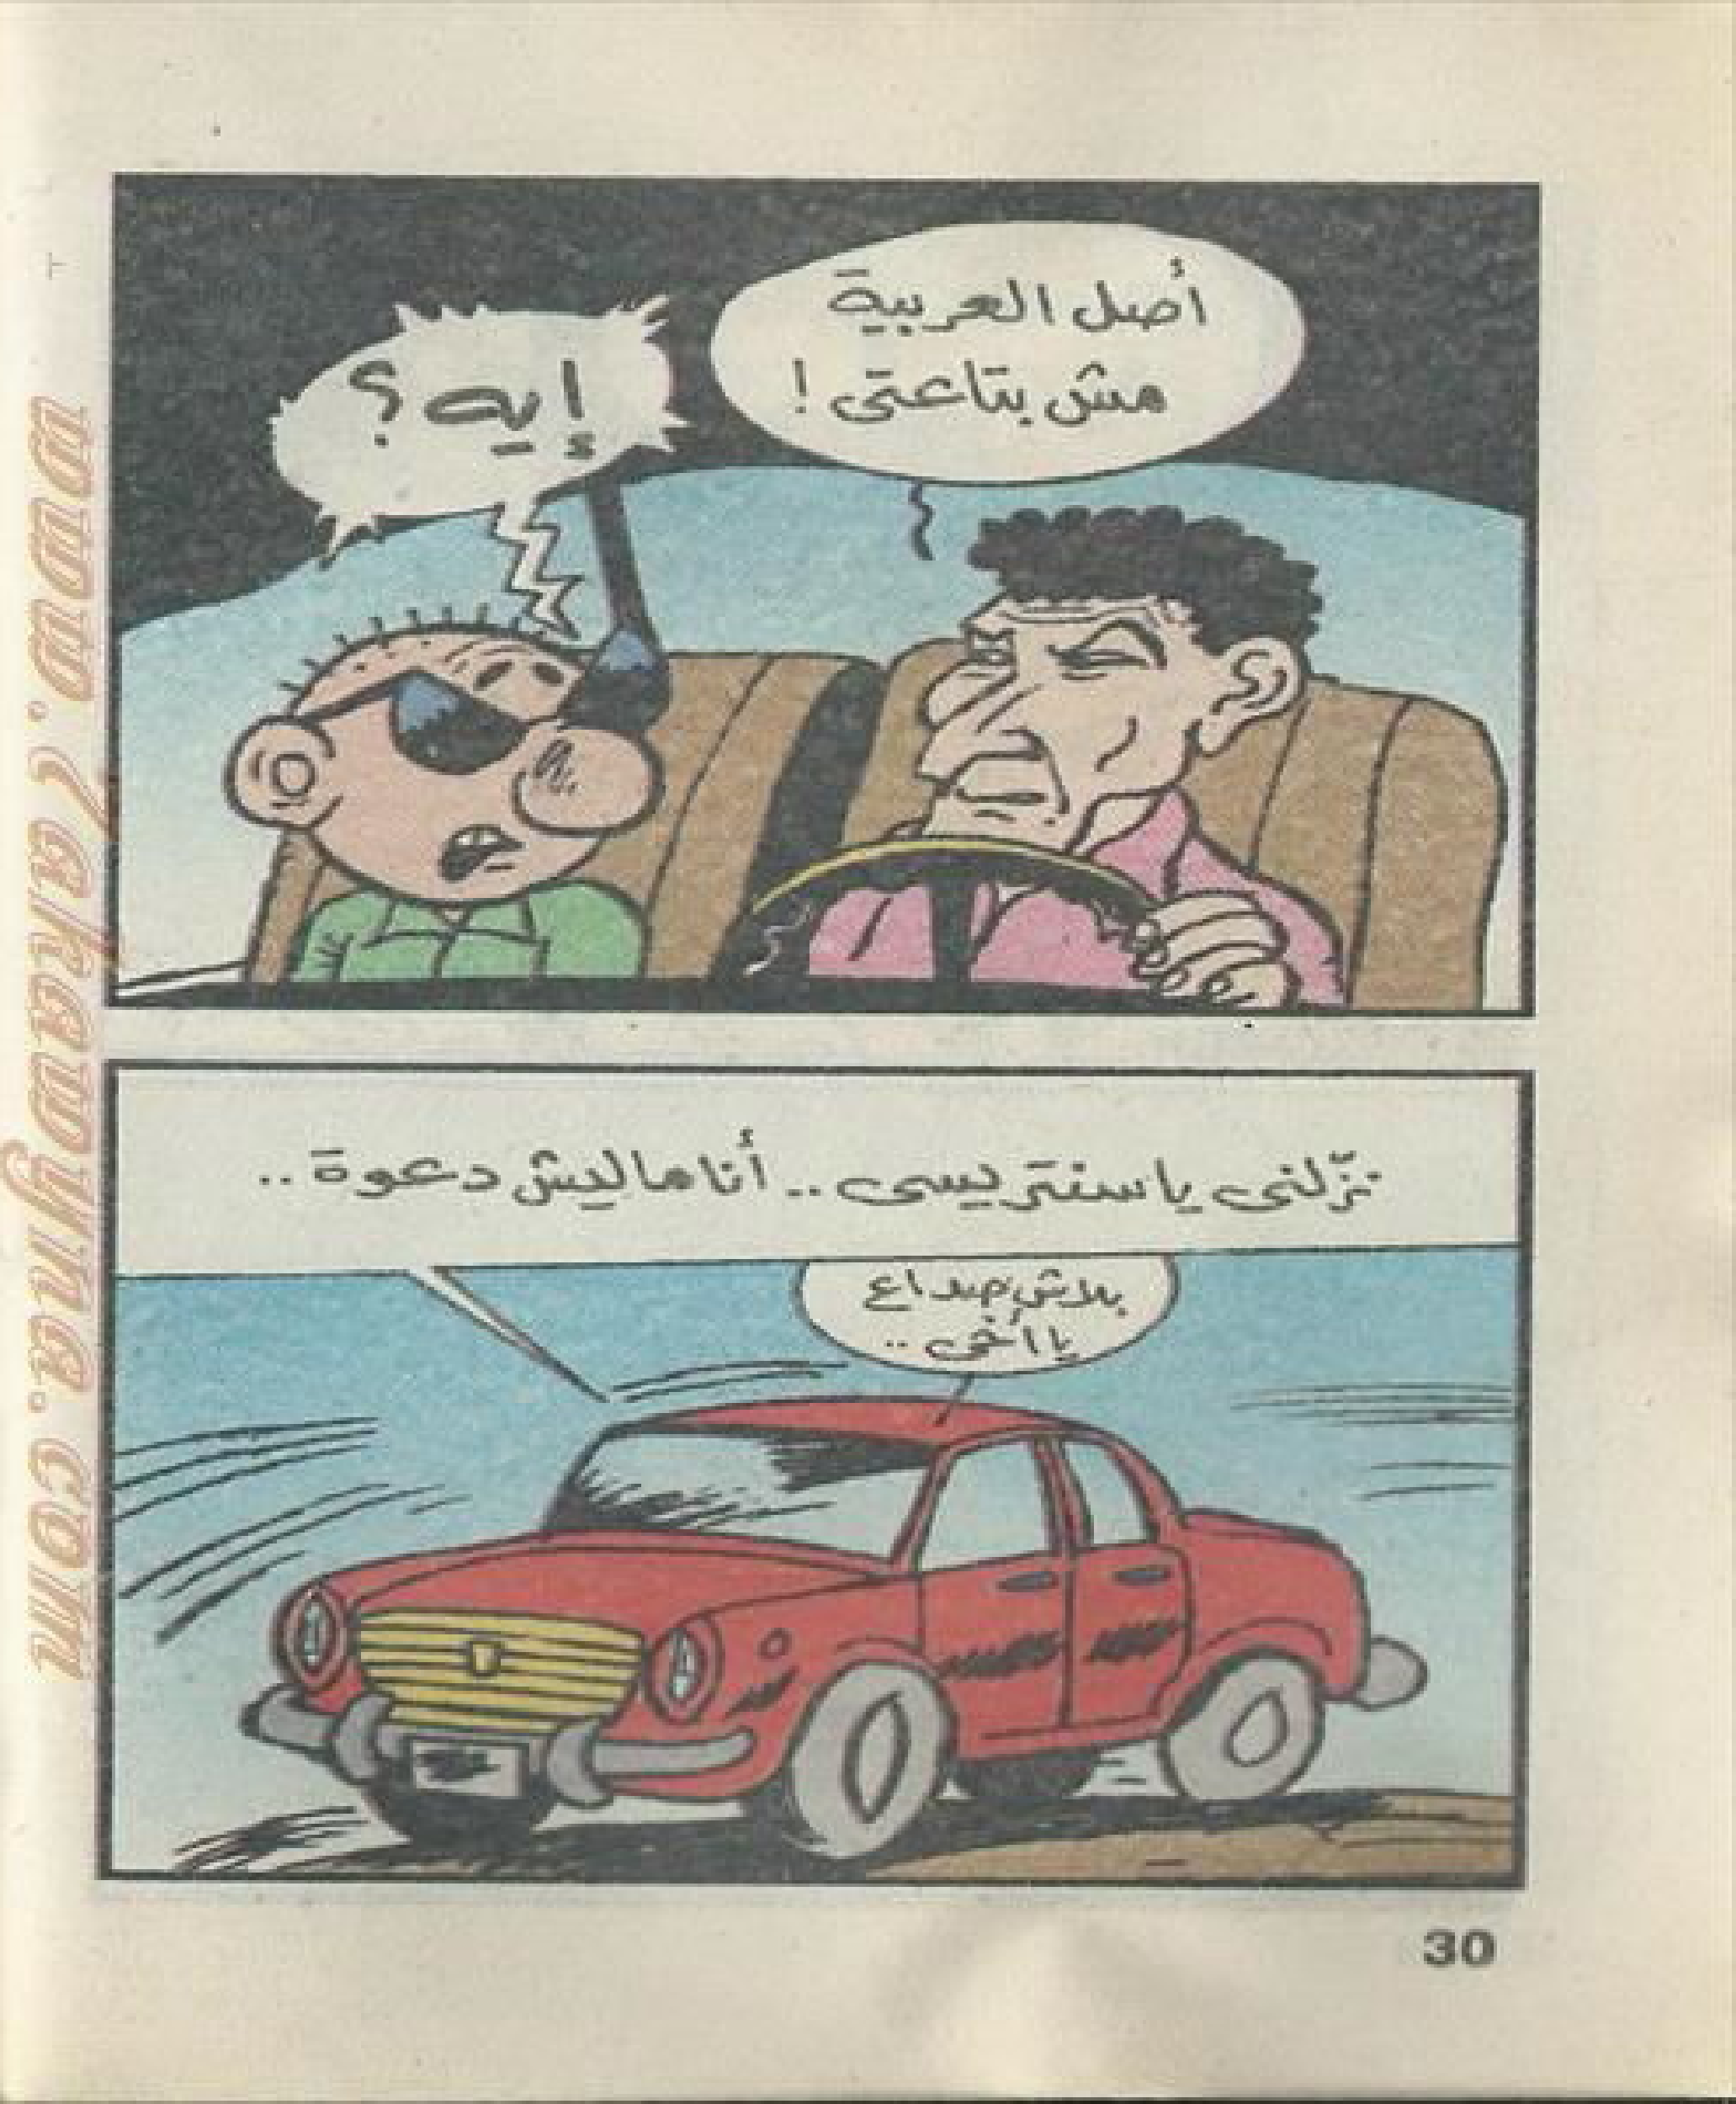 أصل العربية
مش بتاعتى !
إيه ؟
نزّلنى يا سنتريسى .. أنا ماليش دعوة ..
بلاش صداع
يا أخى ..
30
www.7akawyna.com